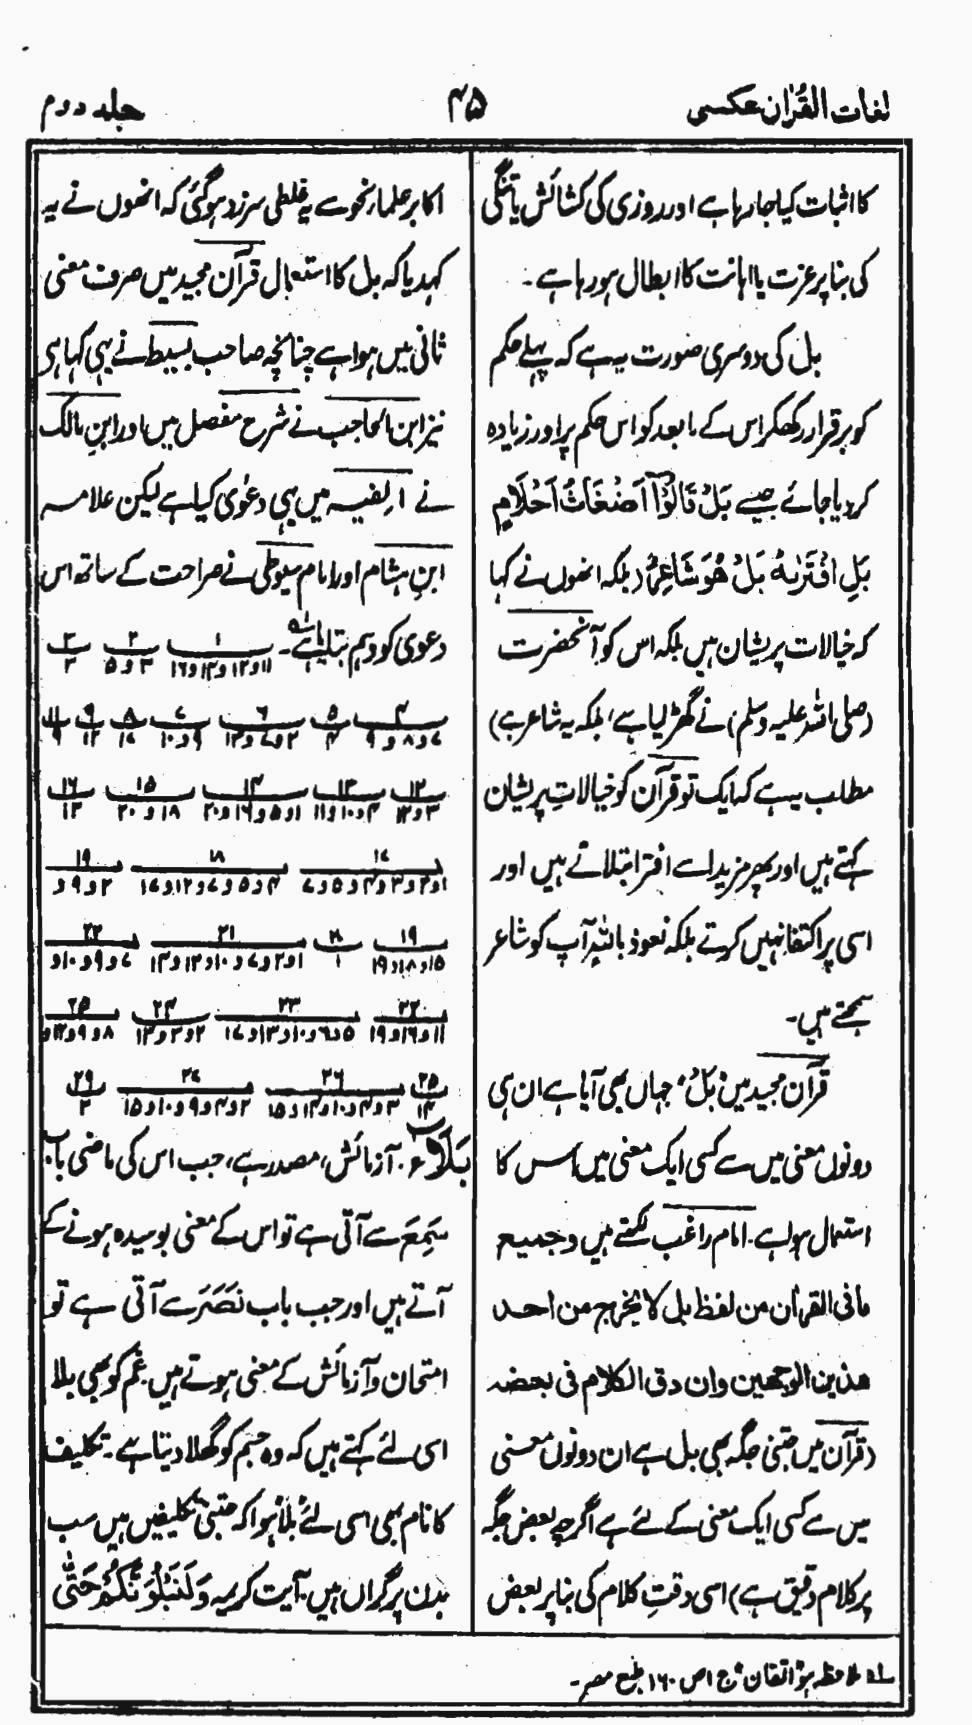 لغات القرآن عکسی
۴۵
جلد دوم
کا اثبات کیا جا رہا ہے اور روزی کی کشائش یا تنگی
کی بنا پر عزت یا اہانت کا ابطال ہو رہا ہے۔
بل کی دوسری صورت یہ ہے کہ پہلے حکم
کو برقرار رکھکر اس کے مابعد کو اس حکم پر اور زیادہ
کر دیا جائے جیسے بَلْ قَالُوْٓا اَضْغَاثُ اَحْلَامٍ
بَلِ افْتَرٰىهُ بَلْ هُوَ شَاعِرٌ (بلکہ انھوں نے کہا
کہ خیالات پریشان ہیں بلکہ اس کو آنحضرت
(صلی اللہ علیہ وسلم) نے گھڑ لیا ہے، بلکہ یہ شاعر ہے)
مطلب یہ ہے کہ ایک تو قرآن کو خیالاتِ پریشان
کہتے ہیں اور پھر مزید اسے افترا بتلاتے ہیں اور
اسی پر اکتفا نہیں کرتے بلکہ نعوذ باللہ آپ کو شاعر
سمجھتے ہیں۔
قرآن مجید میں "بَلْ" جہاں بھی آیا ہے ان ہی
دونوں معنی میں سے کسی ایک معنی میں اس کا
استعمال ہوا ہے۔ امام راغب لکھتے ہیں وجمیع
مافی القرآن من لفظ بل لا یخرج من احد
ھذین الوجھین وان دق الکلام فی بعضہ
(قرآن میں جتنی جگہ بھی بل ہے ان دونوں معنی
میں سے کسی ایک معنی کے لئے ہے اگرچہ بعض جگہ
پر کلام دقیق ہے) اسی دقتِ کلام کی بنا پر بعض
اکابر علماء نحو سے یہ غلطی سرزد ہو گئی کہ انھوں نے یہ
کہدیا کہ بل کا استعمال قرآن مجید میں صرف معنی
ثانی میں ہوا ہے چنانچہ صاحب بسیط نے یہی کہا ہی
نیز ابن الحاجب نے شرح مفصل میں اور ابنِ مالک
نے الفیہ میں یہی دعوٰی کیا ہے لیکن علامہ
ابنِ ہشام اور امام سیوطی نے صراحت کے ساتھ اس
دعوی کو وہم بتلایا ہے۔ ۱ ۲ ۳
۱۱و۱۲و۱۳و۱۶ ۳و۵ ۲
۴ ۵ ۶ ۷ ۸ ۹ ۱۱
۷و۸و۹ ۴ ۲و۷و۱۲ ۹و۱۰ ۱۷ ۱۲ ۹
۱۲ ۱۳ ۱۴ ۱۵ ۱۶
۳و۱۲ ۴و۱۰و۱۱ ۱و۵و۱۶و۲۰ ۱۸و۲۰ ۱۳
۱۷ ۱۸ ۱۹
۱و۲و۳و۴و۵و۷ ۴و۵و۷و۱۲و۱۷ ۲و۹و
۱۹ ۲۰ ۲۱ ۲۲
۱۵و۱۸و۱۹ ۱ ۱و۲و۷و۱۰و۱۲و۱۴ ۷و۹و۱۰و
۲۲ ۲۳ ۲۴ ۲۵
۱۱و۱۶و۱۹ ۵و۶و۱۰و۱۳و۱۷ ۲و۳و۱۳ ۸و۹و۱۲و
۲۵ ۲۶ ۲۷ ۲۹
۱۴ ۳و۴و۱۰و۱۴و۱۵ ۲و۴و۹و۱۰و۱۵ ۲
بَلَاءٌ۔ آزمائش، مصدر ہے، جب اس کی ماضی باب
سَمِعَ سے آتی ہے تو اس کے معنی بوسیدہ ہونے کے
آتے ہیں اور جب باب نَصَرَ سے آتی ہے تو
امتحان و آزمائش کے معنی ہوتے ہیں۔ غم کو بھی بلا
اسی لئے کہتے ہیں کہ وہ جسم کو گھلا دیتا ہے۔ تکلیف
کا نام بھی اسی لئے بَلَاءٌ ہوا کہ جتنی تکلیفیں ہیں سب
بدن پر گراں ہیں۔ آیت کریمہ وَلَنَبْلُوَنَّكُمْ حَتّٰى
لہ ملاحظہ ہو "اتقان" ج ا ص ۱۶۰ طبع مصر۔